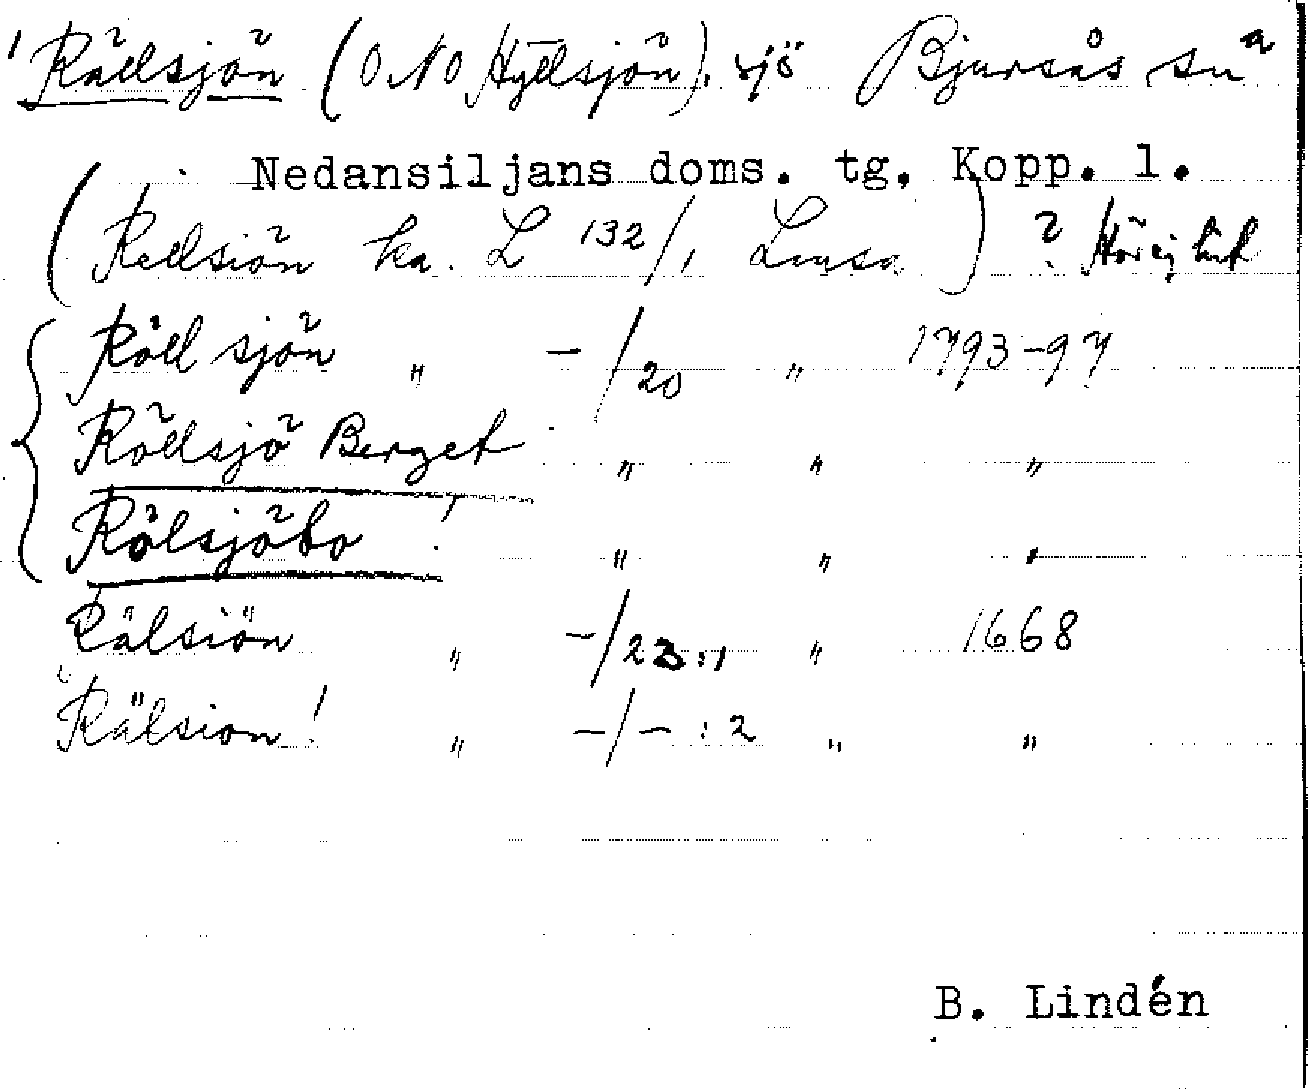 Rällsjön (O.NO Hyllsjön), sjö Bjursås sn
Nedansiljans doms. tg. Kopp. l.
(Rellsiön ka. L 132/1 Lmsa) ? Hör ej hit
Röll sjön " -/20 " 1793-97
Röllsjö Berget " " "
Rölsjöbo ! " " "
Rälsiön " -/23:1 " 1668
Rälsion ! " -/-:2 " "
B. Lindén